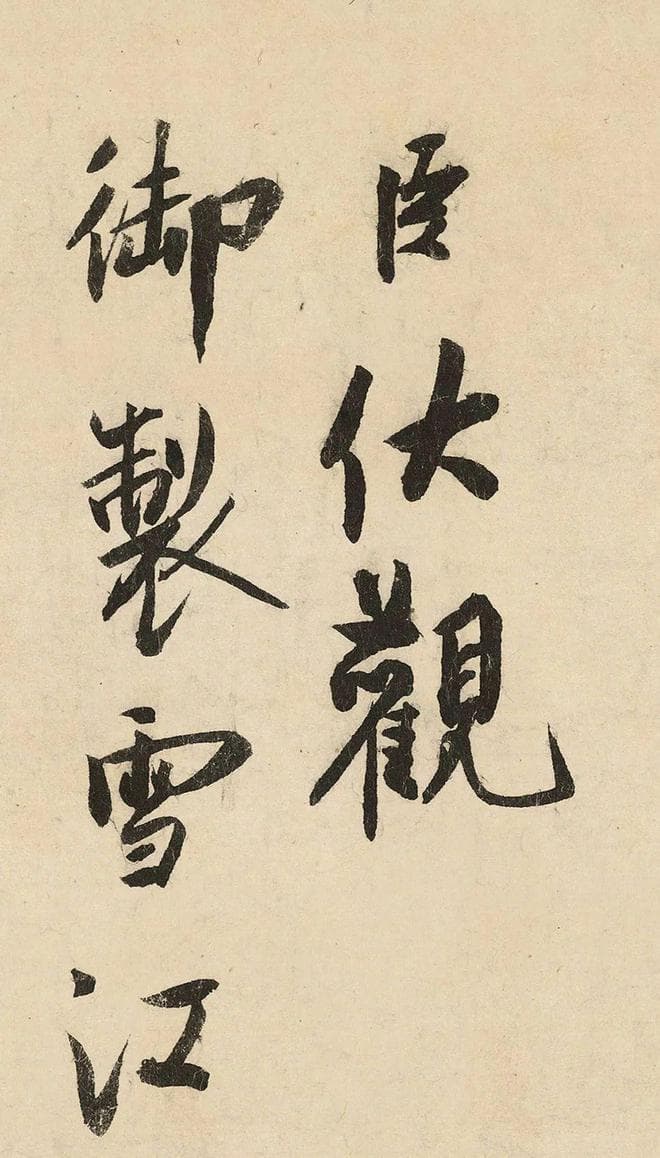 臣伏觀
御製雪江